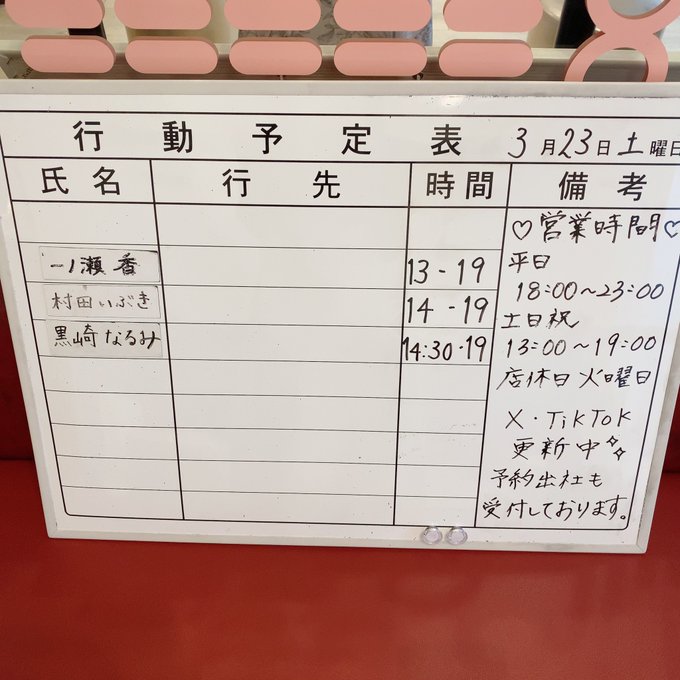 行動予定表 3月23日土曜日
氏名 行先 時間 備考
一ノ瀬香 13-19
村田いぶき 14-19
黒崎なるみ 14:30-19
♡営業時間♡
平日
18:00~23:00
土日祝
13:00~19:00
店休日 火曜日
X・TikTok
更新中
予約出社も
受付しております。